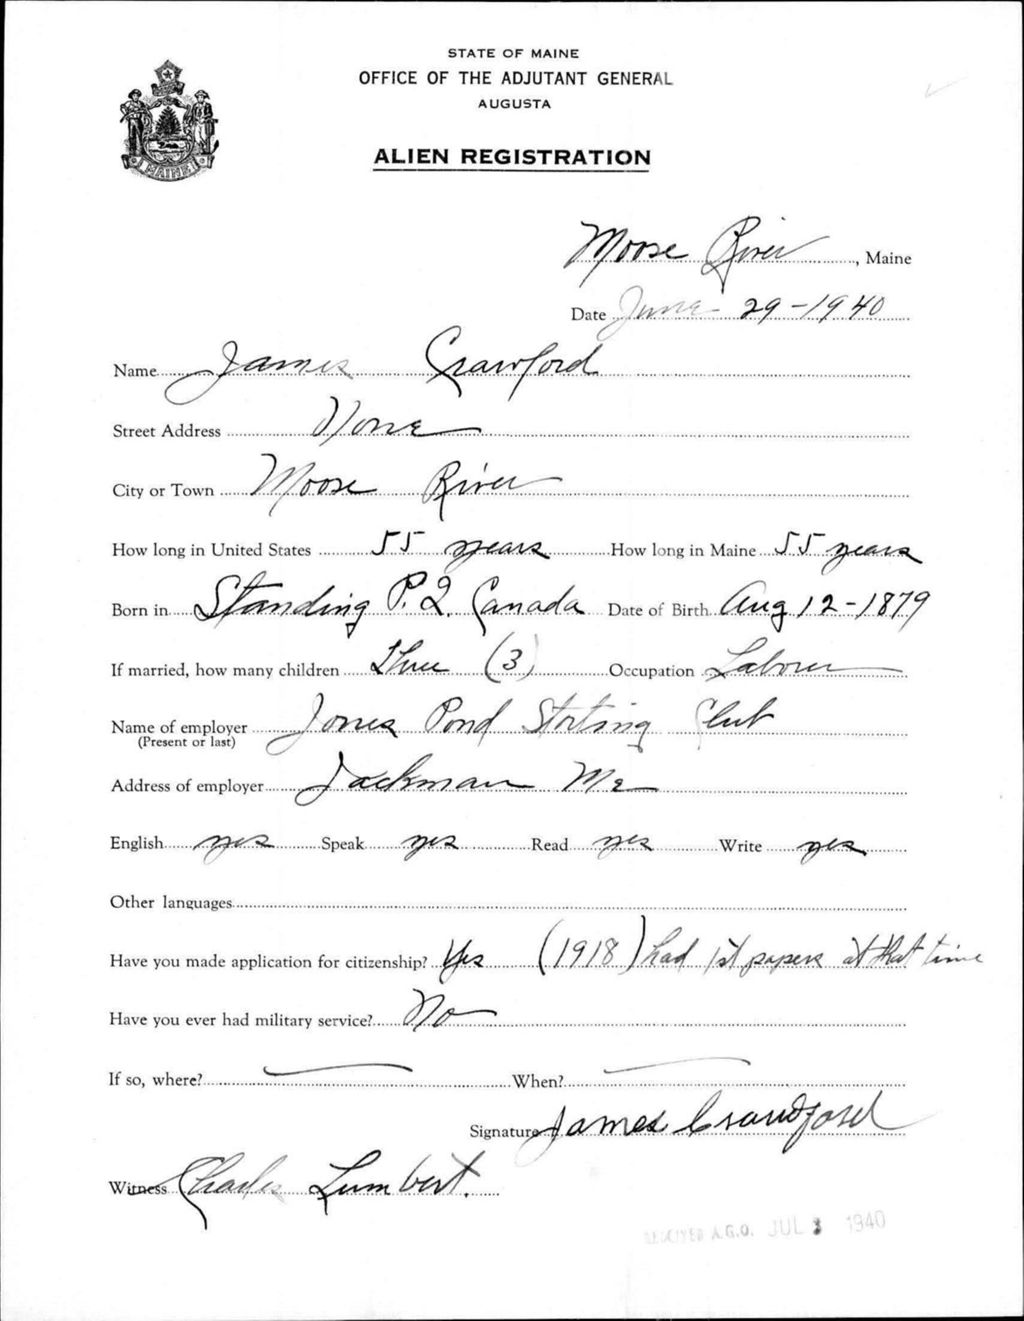 STATE OF MAINE
OFFICE OF THE ADJUTANT GENERAL
AUGUSTA
ALIEN REGISTRATION
MAINE
Moose River, Maine
Date June 29-1940
Name James Crawford
Street Address None
City or Town Moose River
How long in United States 55 years How long in Maine 55 years
Born in Standing P. Q. Canada Date of Birth Aug 12-1879
If married, how many children three (3) Occupation Laborer
Name of employer Jones Pond Club
(Present or last)
Address of employer Jackman Me
English yes Speak yes Read yes Write yes
Other languages
Have you made application for citizenship? Yes (1918) had 1st papers at that time
Have you ever had military service? No
If so, where? When?
Signature James Crawford
Witness Charles Lumbert.
RECEIVED A.G.O. JUL 1940